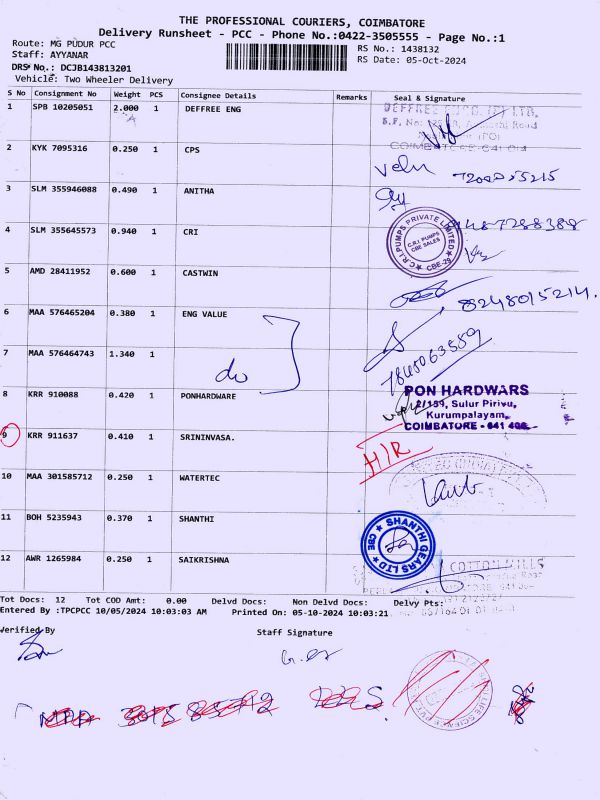 THE PROFESSIONAL COURIERS, COIMBATORE
Delivery Runsheet - PCC - Phone No.:0422-3505555 - Page No.:1
Route: MG PUDUR PCC
RS No.: 1438132
Staff: AYYANAR
RS Date: 05-Oct-2024
DRS No.: DCJB143813201
Vehicle: Two Wheeler Delivery
S No Consignment No Weight PCS Consignee Details Remarks Seal & Signature
1 SPB 10205051 2.000 1 DEFFREE ENG
COIMBATORE-641
2 KYK 7095316 0.250 1 CPS
velu
3 SLM 355946088 0.490 1 ANITHA
4 SLM 355645573 0.940 1 CRI
C.R.I PUMPS PRIVATE LIMITED
C.R.I. PUMPS
CBE SALES
CBE-29
5 AMD 28411952 0.600 1 CASTWIN
8248015214.
6 MAA 576465204 0.380 1 ENG VALUE
7 MAA 576464743 1.340 1
do
7845063589
8 KRR 910088 0.420 1 PONHARDWARE
PON HARDWARS
2/159, Sulur Pirivu,
Kurumpalayam,
COIMBATORE - 641
9 KRR 911637 0.410 1 SRININVASA.
H/R
10 MAA 301585712 0.250 1 WATERTEC
11 BOH 5235943 0.370 1 SHANTHI
SHANTHI GEARS LTD
CBE
12 AWR 1265984 0.250 1 SAIKRISHNA
COTTON MILLS
Tot Docs: 12 Tot COD Amt: 0.00 Delvd Docs: Non Delvd Docs: Delvy Pts:
Entered By :TPCPCC 10/05/2024 10:03:03 AM Printed On: 05-10-2024 10:03:21
Verified By
Staff Signature